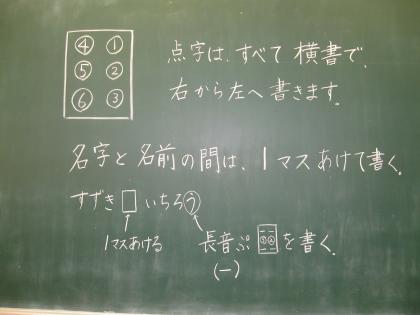 ④ ①
⑤ ②
⑥ ③
点字は、すべて横書で、
右から左へ書きます。
名字と名前の間は、1マスあけて書く。
すずき□いちろう
1マスあける
長音ぷ ⑤② を書く。
(ー)